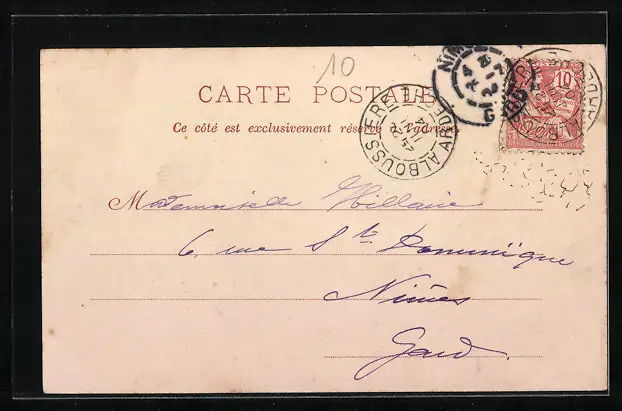 10
CARTE POSTALE
Ce côté est exclusivement réservé à l'adresse.
NIM
10
ALBOUSSIERE ARDECHE
Mademoiselle Hillaire
6, rue St. Dominique
Nimes
Gard.